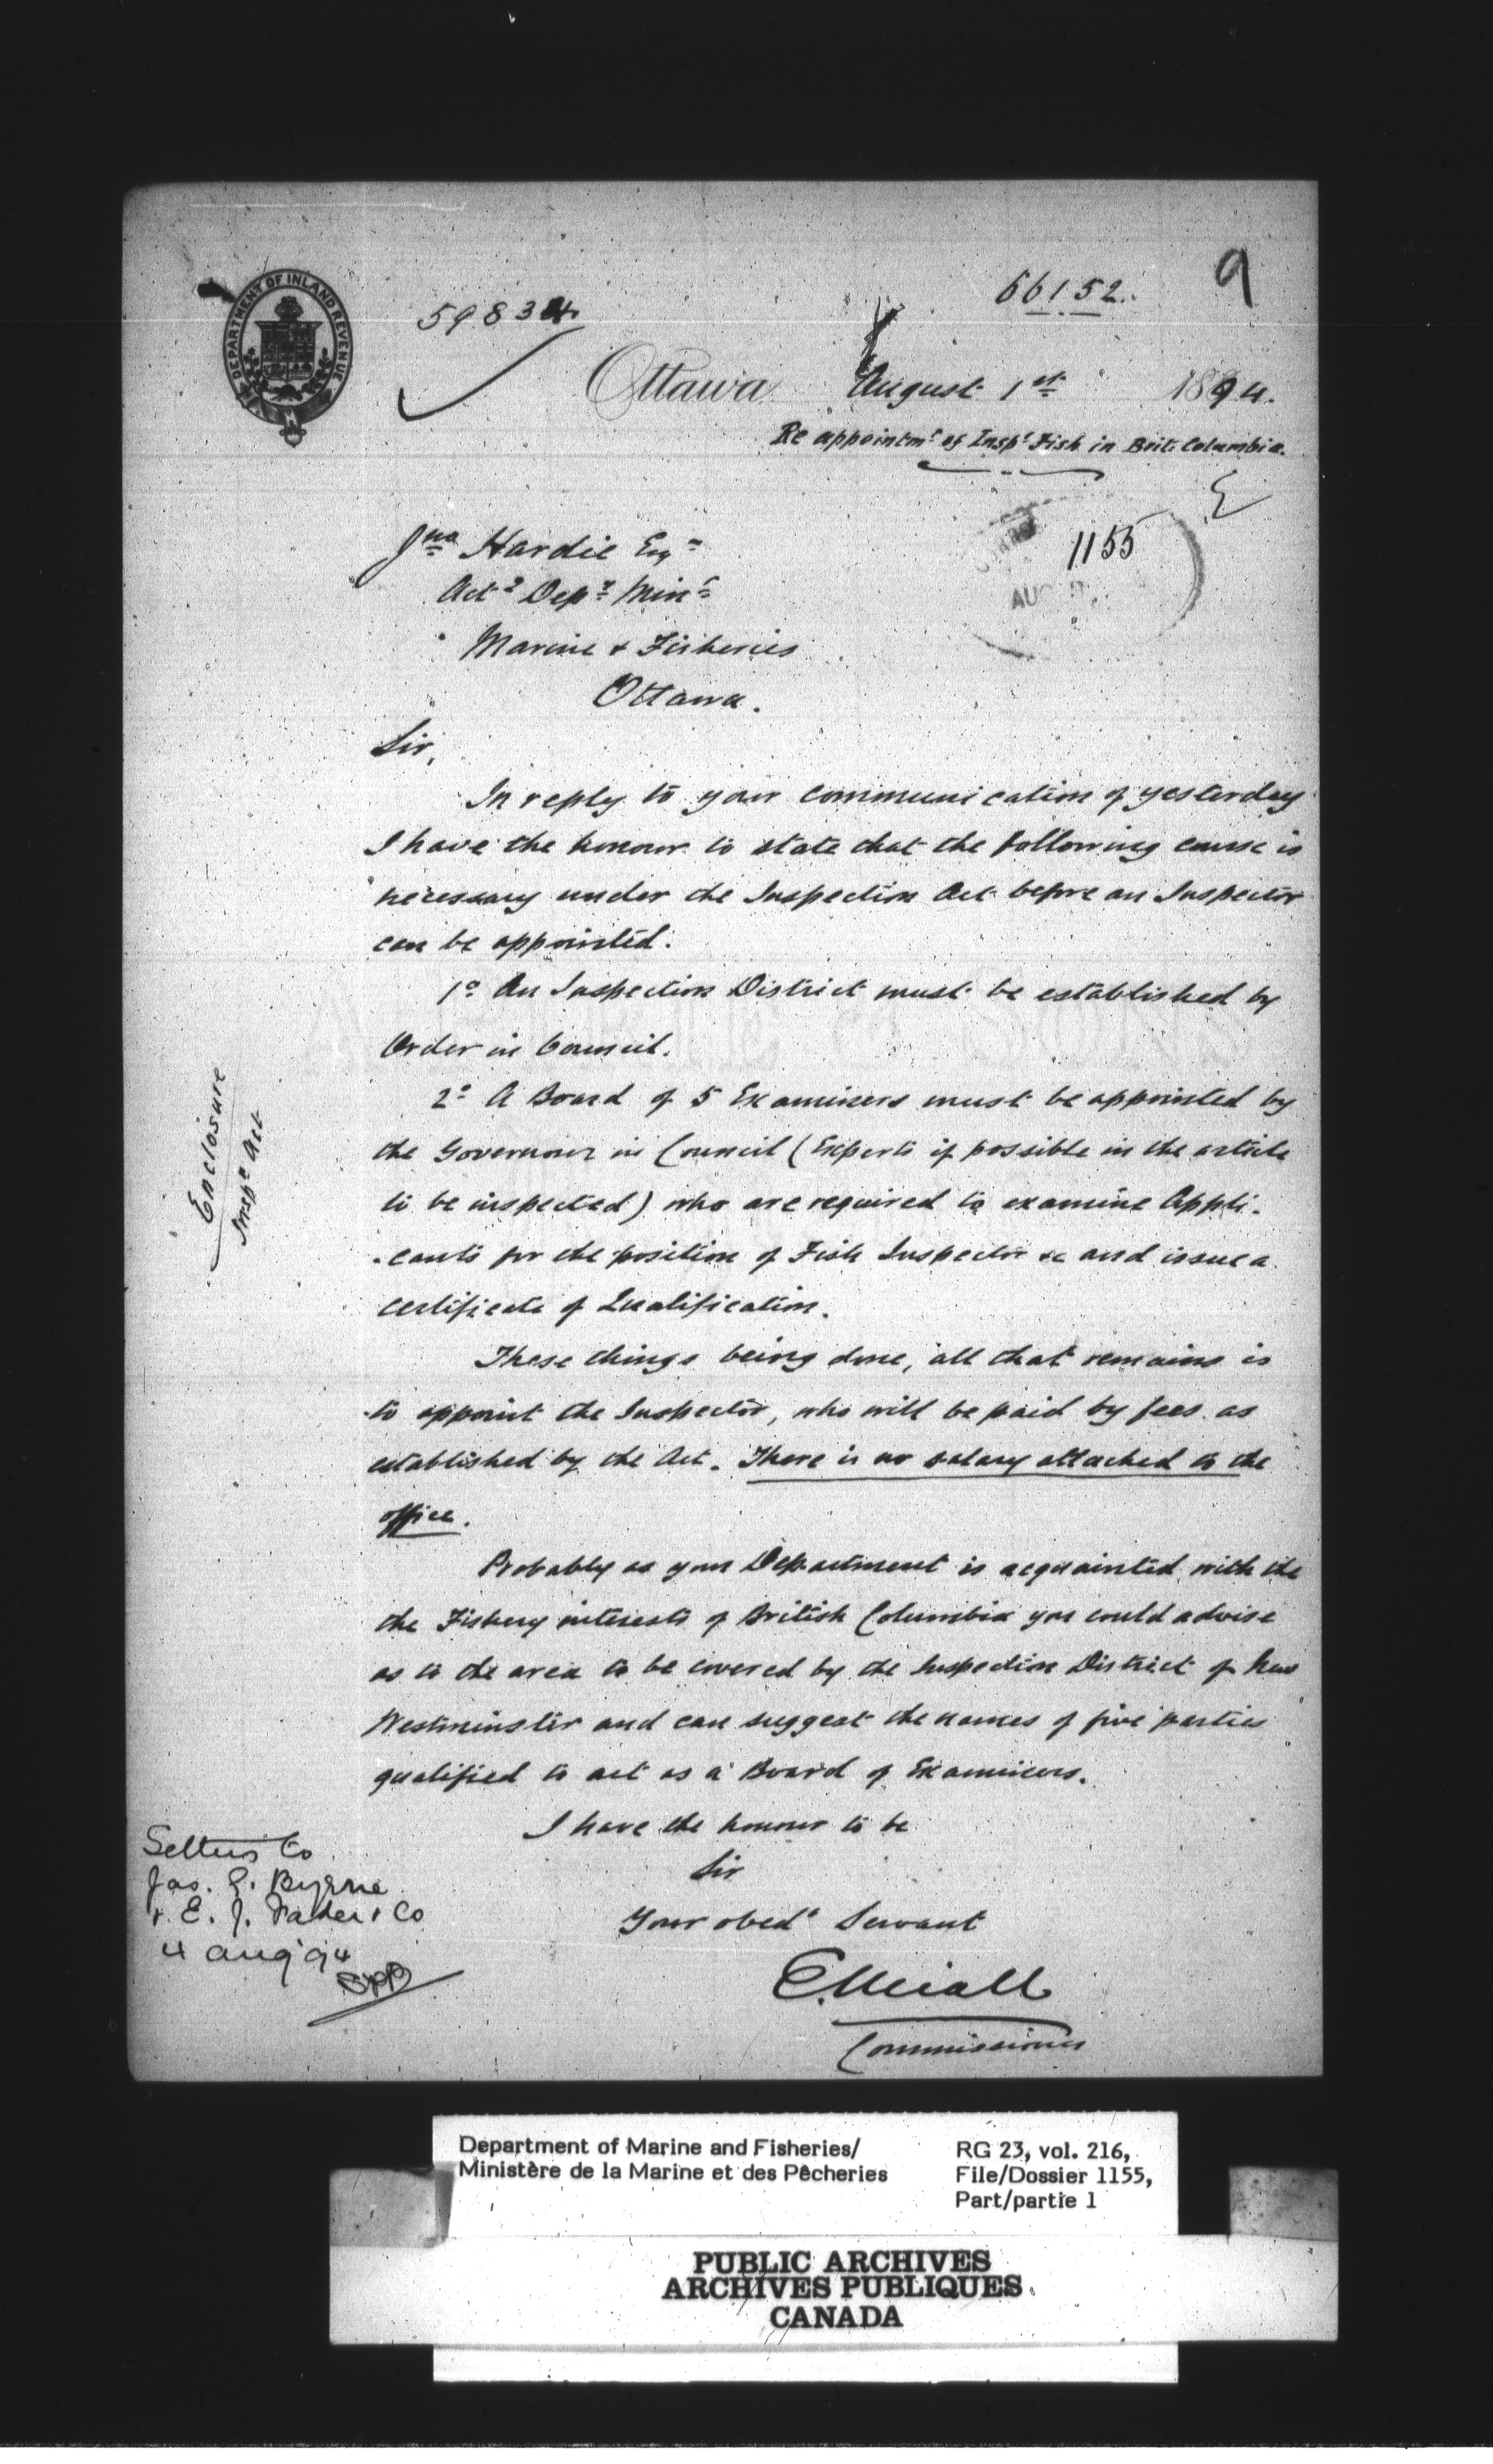 DEPARTMENT OF INLAND REVENUE
59834
66152.
9
Ottawa August 1st 1894.
Re appointmt of Inspr Fish in Brit. Columbia.
1155
AUG
Jno Hardie Esq
Actg Depy Minr
Marine & Fisheries
Ottawa.
Sir,
In reply to your communication of yesterday
I have the honour to state that the following course is
necessary under the Inspection Act before an Inspector
can be appointed.
1o An Inspection District must be established by
Order in Council.
2o A Board of 5 Examiners must be appointed by
the Governour in Council (Experts if possible in the article
to be inspected) who are required to examine Appli-
-cants for the position of Fish Inspector &c and issue a
certificate of Qualification.
These things being done, all that remains is
to appoint the Inspector, who will be paid by fees as
established by the Act. There is no salary attached to the
office.
Probably as your Department is acquainted with the
the Fishery interests of British Columbia you could advise
as to the area to be covered by the Inspection District of New
Westminster and can suggest the names of five parties
qualified to act as a Board of Examiners.
I have the honour to be
Sir
Your obedt Servant
E. Miall
Commissioner
Enclosure
Inspn Act
Letters to
Jas. G. Byrne
& E. J. Fader & Co
4 Aug '94
Department of Marine and Fisheries/
Ministère de la Marine et des Pêcheries
RG 23, vol. 216,
File/Dossier 1155,
Part/partie 1
PUBLIC ARCHIVES
ARCHIVES PUBLIQUES
CANADA